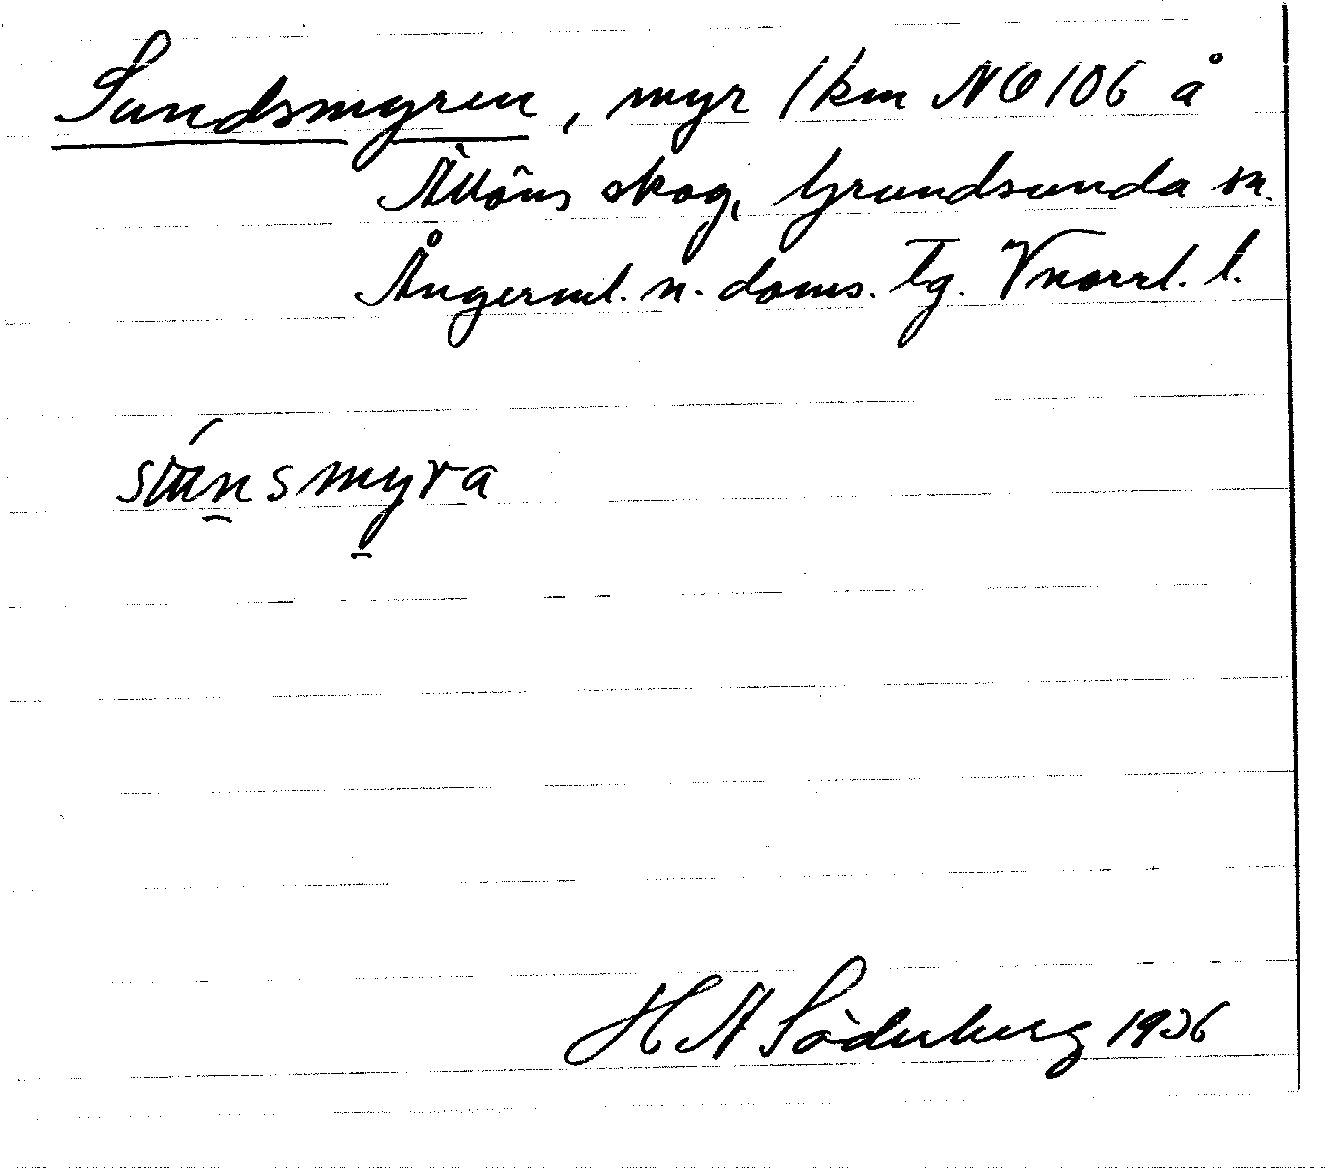 Sundsmyren, myr 1 km NO 106 å
skog, Grundsunda sn.
Ångerml. n. doms. tg. Vnorrl. l.
H A Söderberg 1936